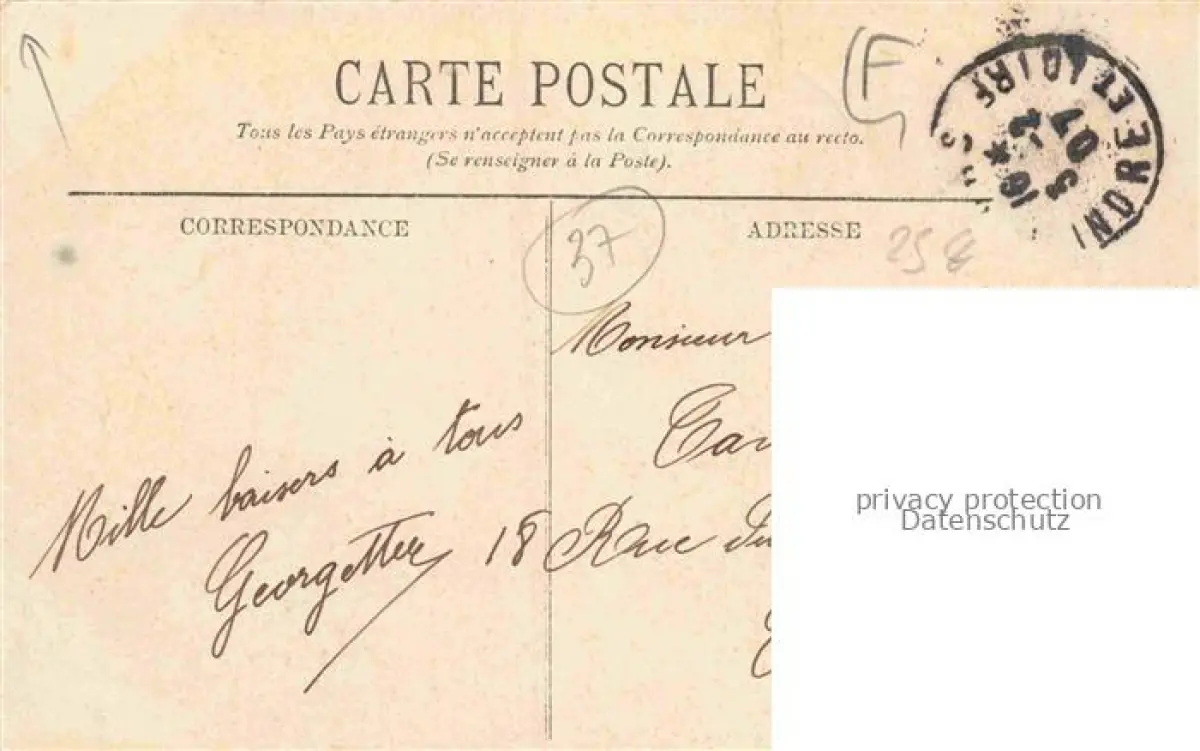 CARTE POSTALE
F
Tous les Pays étrangers n'acceptent pas la Correspondance au recto.
(Se renseigner à la Poste).
INDRE ET LOIRE
16 *
3 - 2
07
CORRESPONDANCE
37
ADRESSE
25 €
Monsieur
Mille baisers à tous
Georgette
18 Rue
privacy protection
Datenschutz